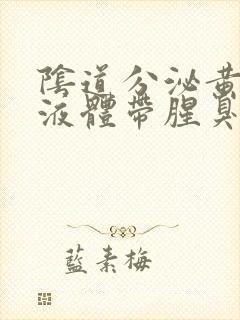 陰道分泌黃
液體帶腥臭
藍素梅